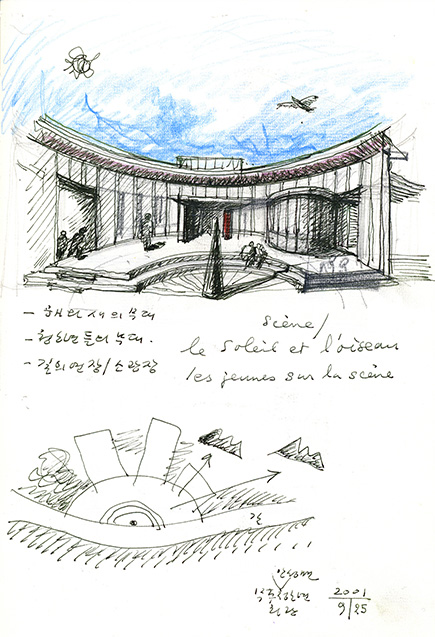 - 해와 새의 무대
- 청소년들의 무대.
- 길의 연장/소광장
Scène/
le soleil et l'oiseau
les jeunes sur la scène
길
2001
9/25